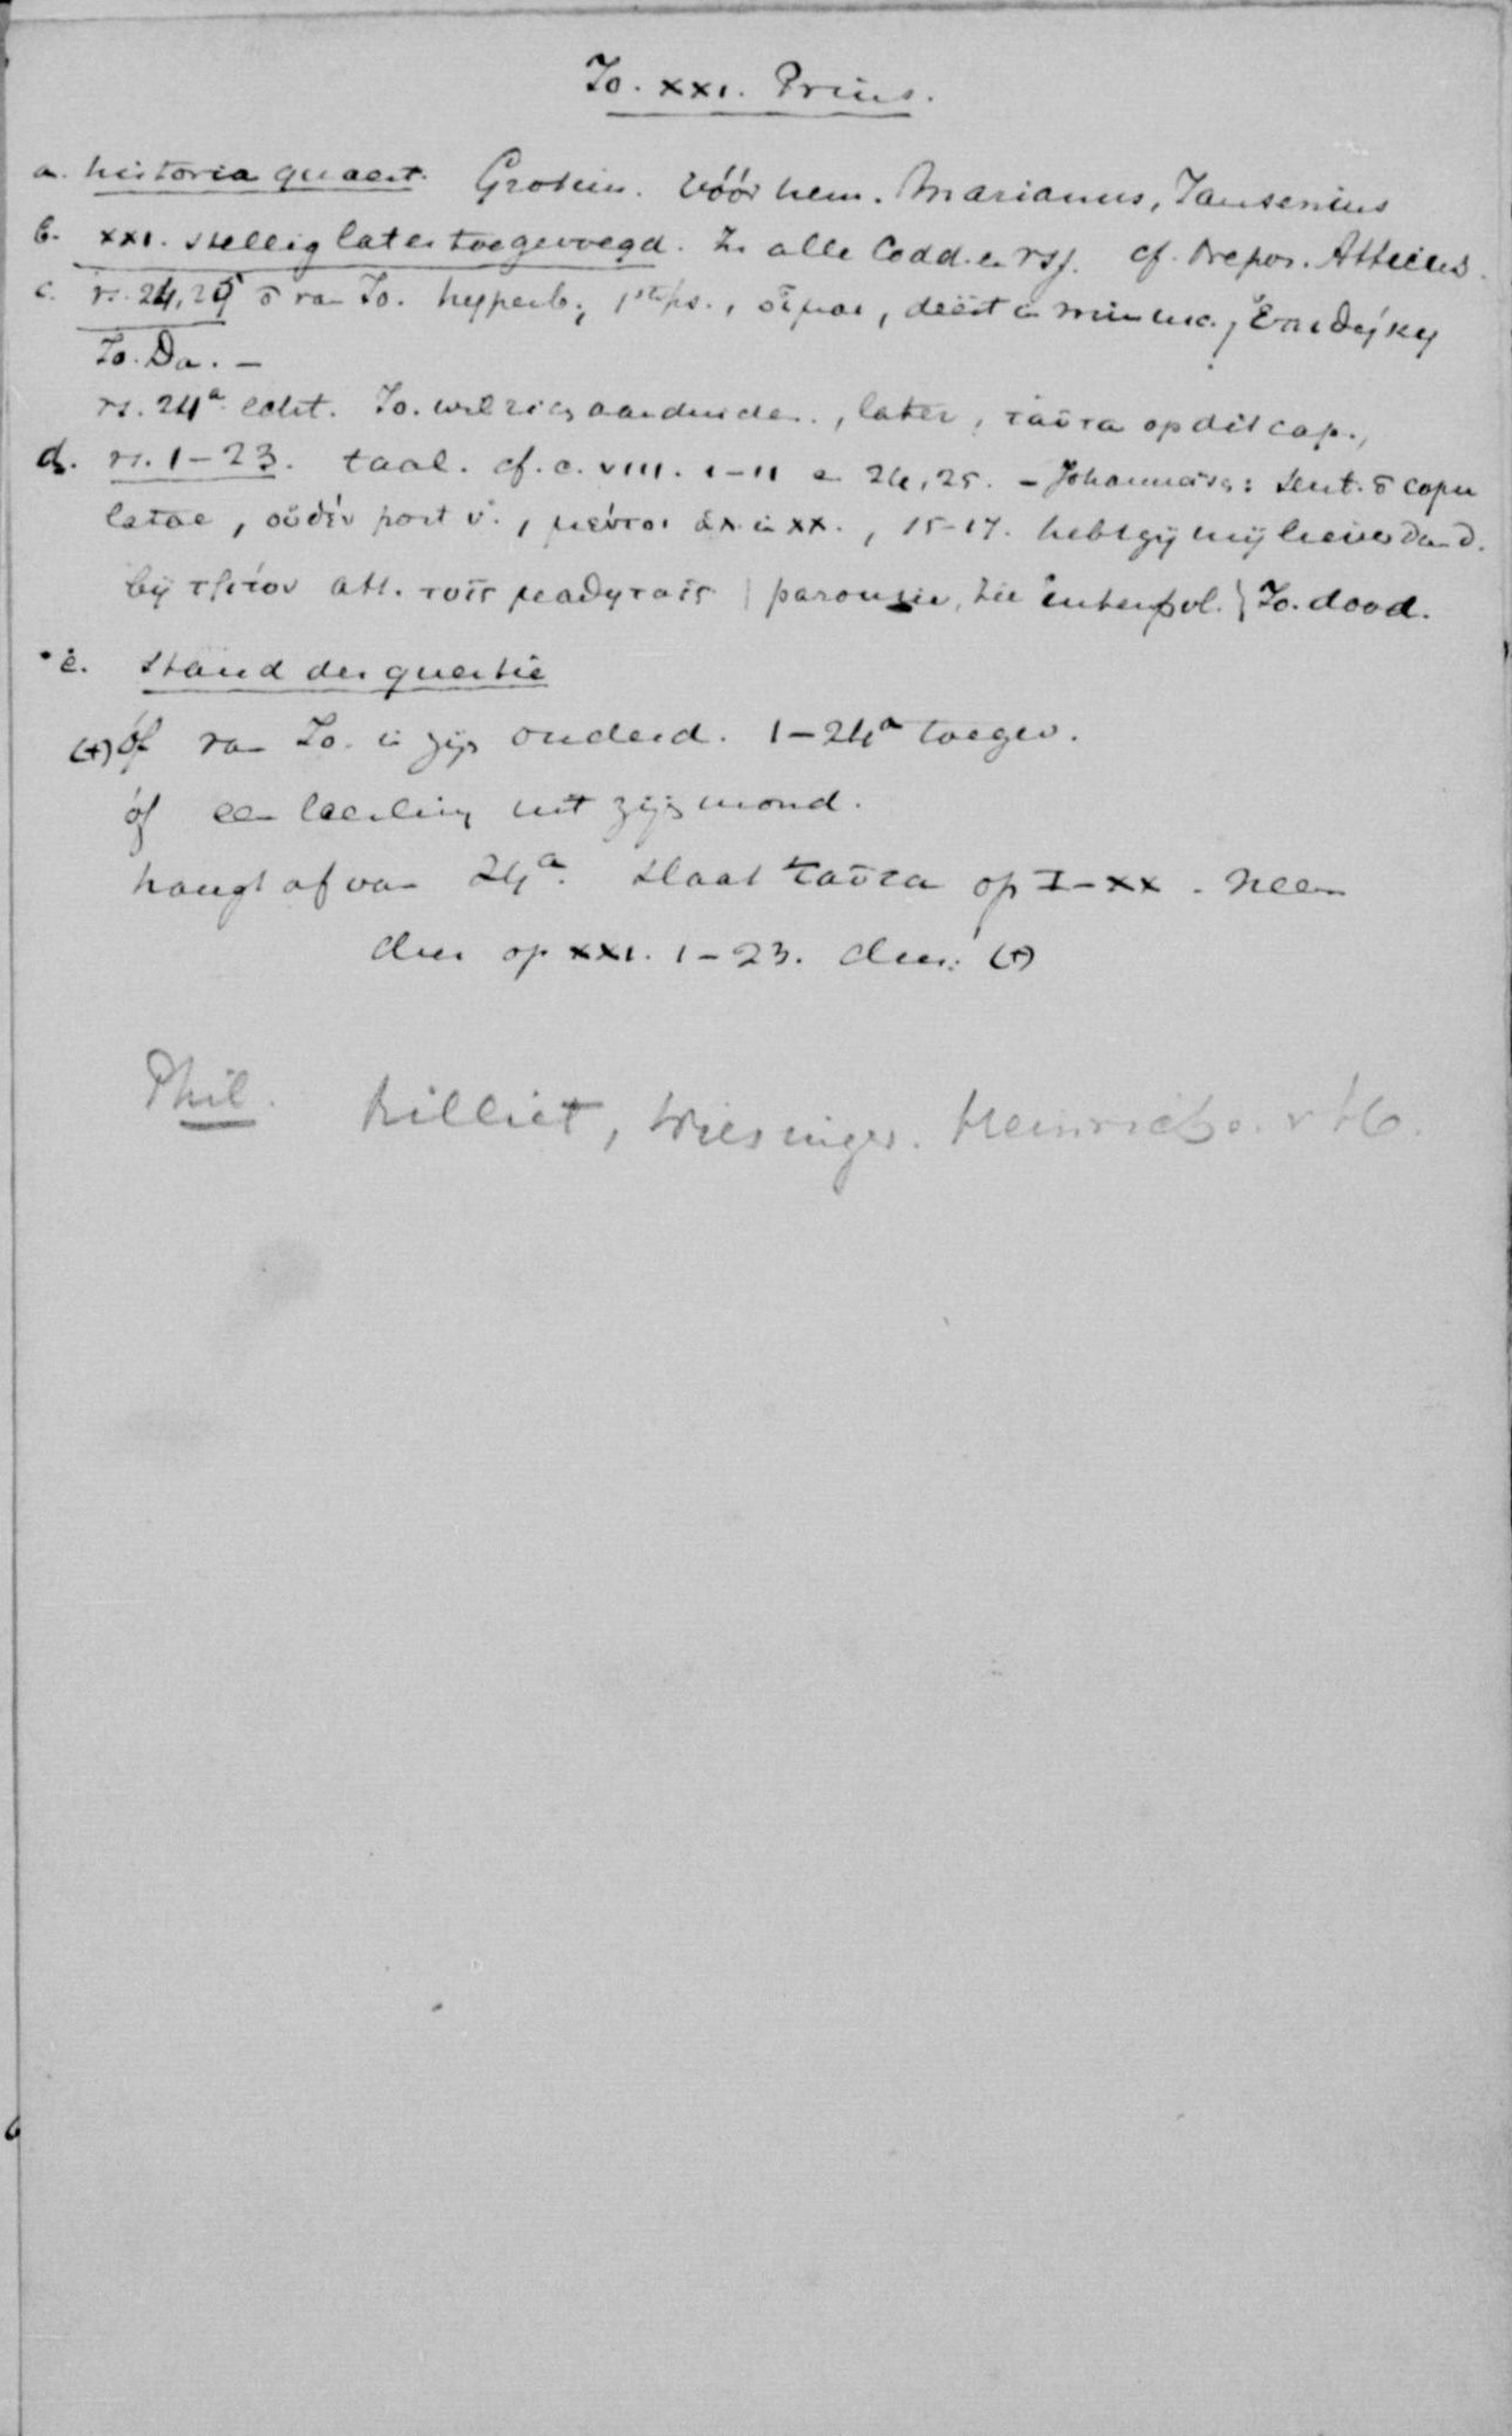 Jo. XXI. Prins.
a. historia quaest. Grotius. vóór hem. Marianus, Jansenius
b. XXI. stellig later toegevoegd. In alle Codd. en vss. cf. Atticus.
c. vs. 24, 25 ō van Jo. hyperb., 1ste ps., οἶμαι, deest in min
Jo. Da. -
vs. 24a echt. Jo. wil zich aanduiden, later, ταῦτα op dit cap.,
d. vs. 1-23. taal. cf. c. VIII. 1-11 en 24, 25. - Johanneïsch: sent. ō copu
latae, οὐδέν post v., μέντοι in XX., 15-17. hebt gij mij liever dan d.
bij τρίτον att. τοῖς μαθηταῖς | parousie, zie interpol. | Jo. dood.
e. Stand der quaestie
(+) óf van Jo. in zijn ouderd. 1-24a toegev.
óf een leerling uit zijn mond.
hangt af van 24a. slaat ταῦτα op I-XX. Neen
dus op XXI. 1-23. dus: (+)
Phil. Rilliet, Wiesinger. Heinrichs. v H.